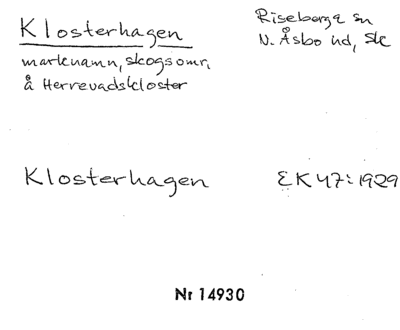 Klosterhagen
Riseberga sn
N. Åsbo hd, Sk
marknamn, skogsomr.
å Herrevadskloster
Klosterhagen
EK 47:1929
Nr 14930